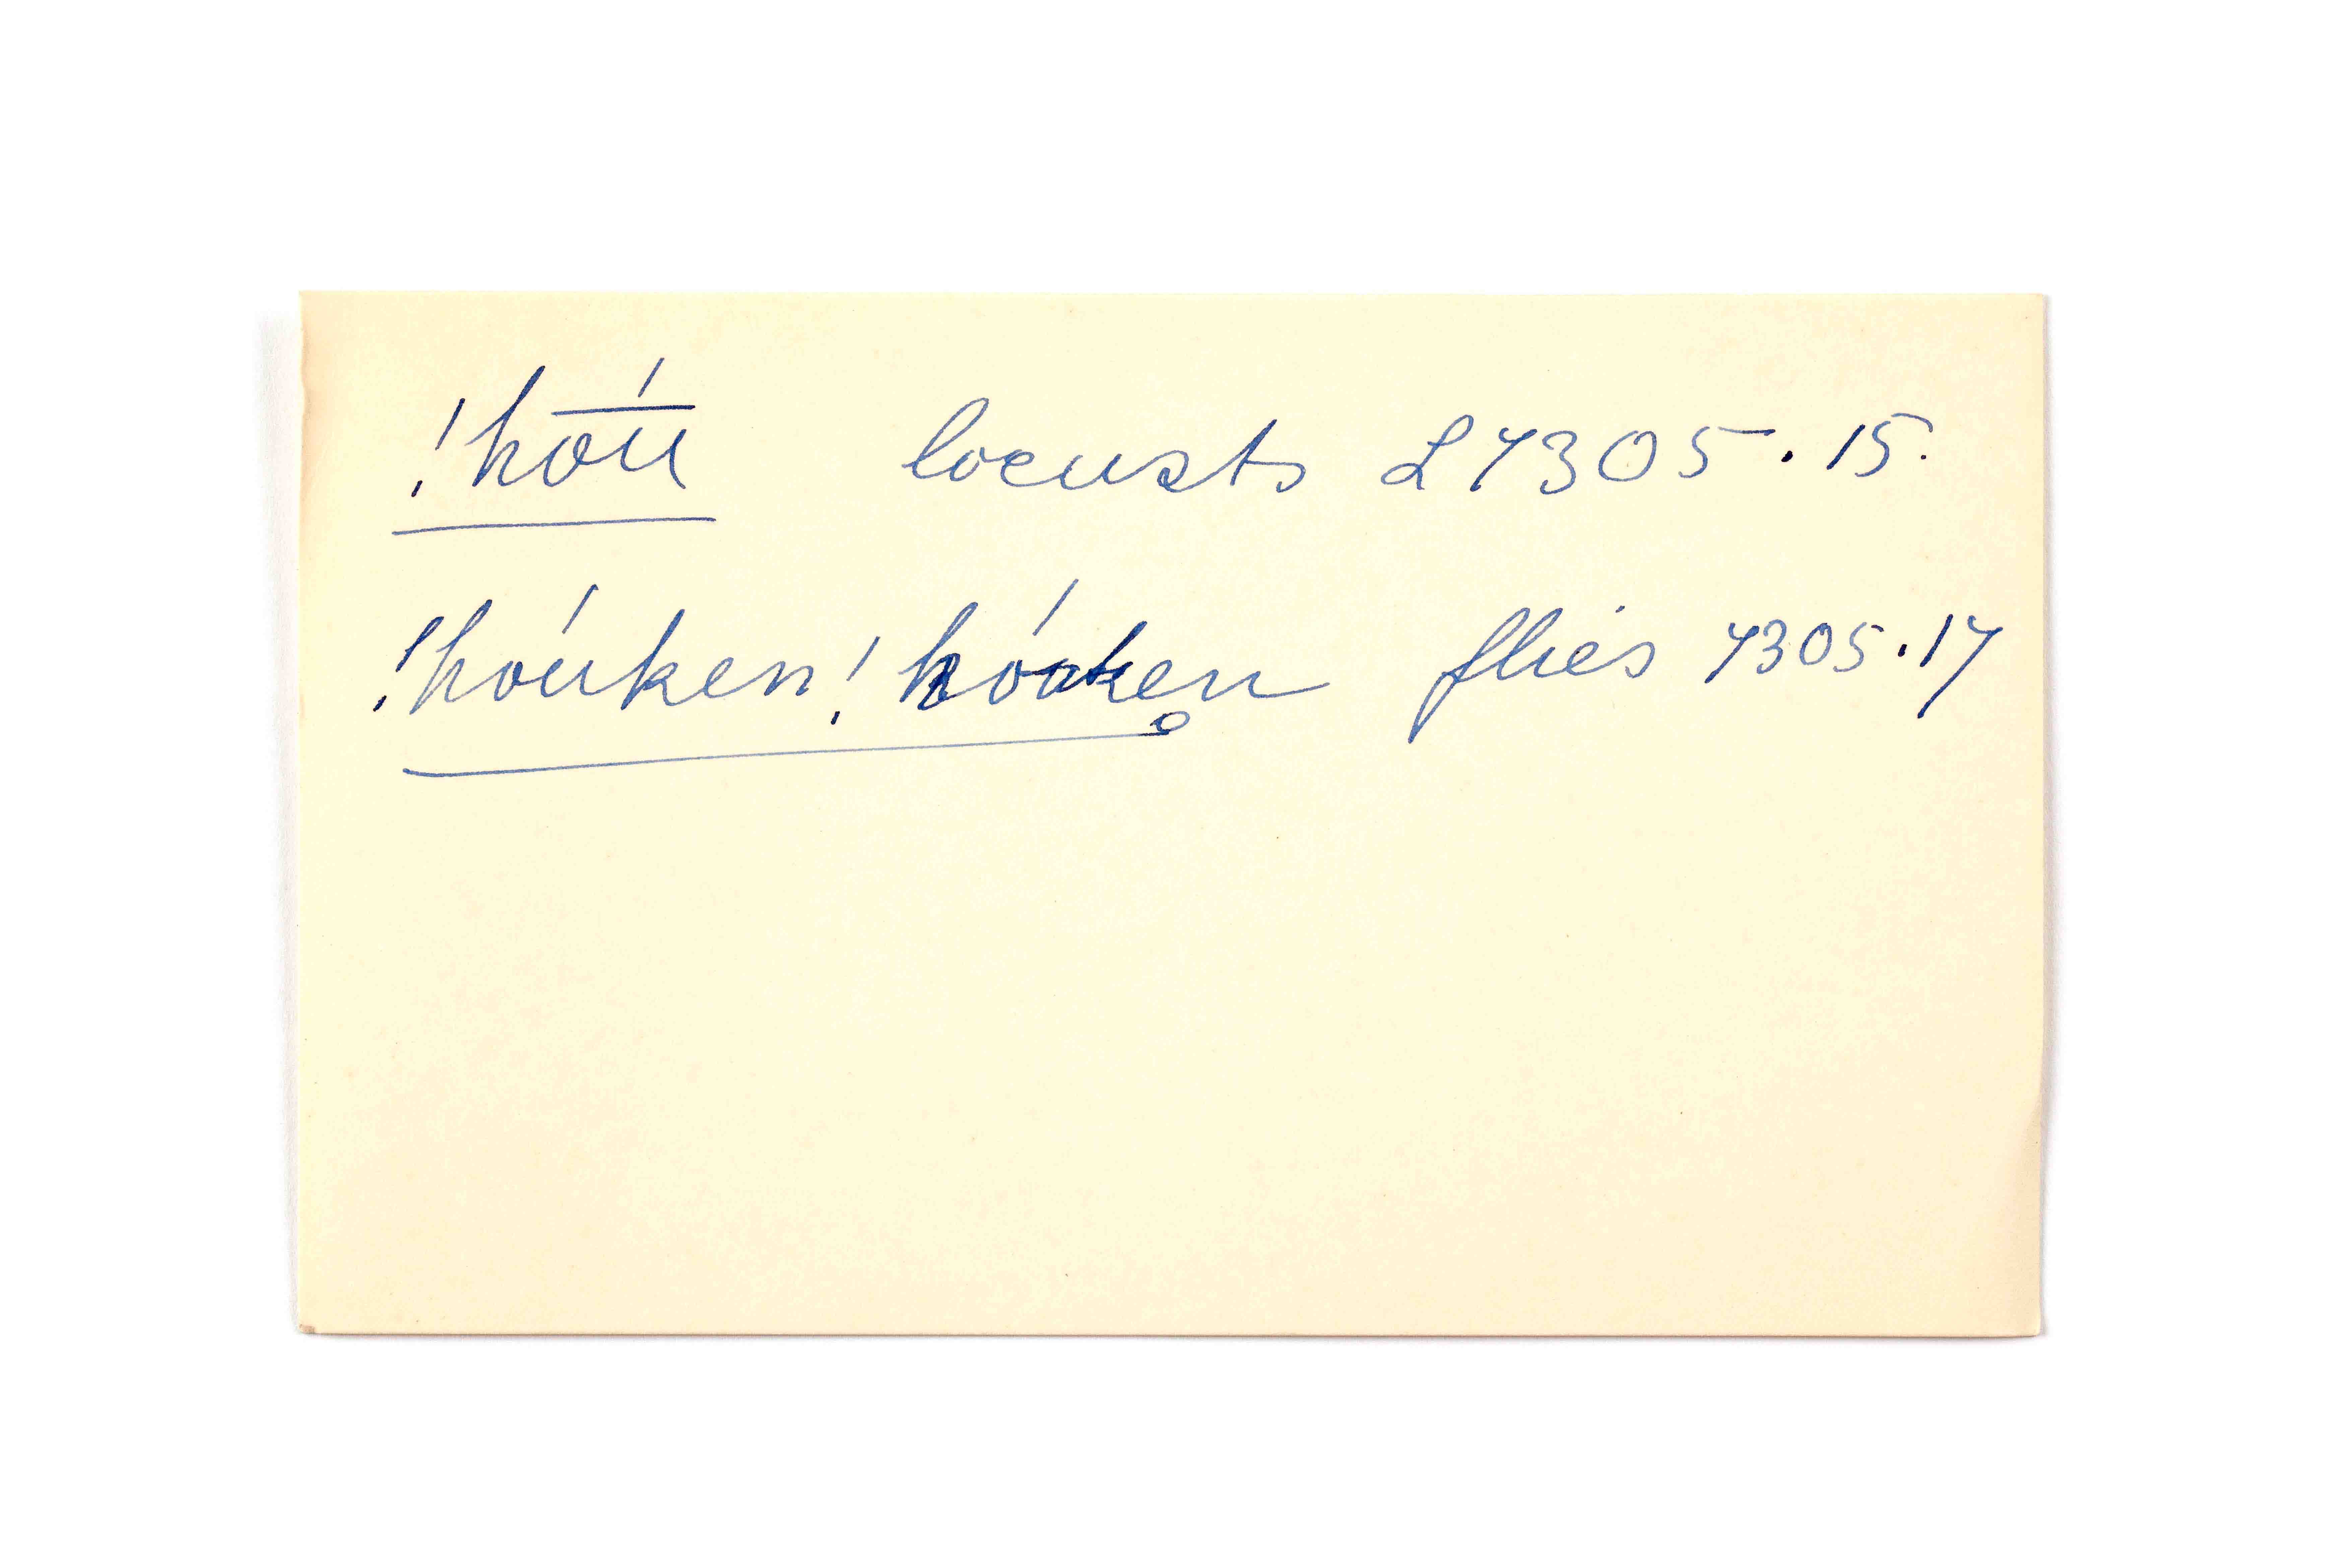 !ho͞ú locusts L7305.15.
!hoúken !hóaken̥ flies 7305.17